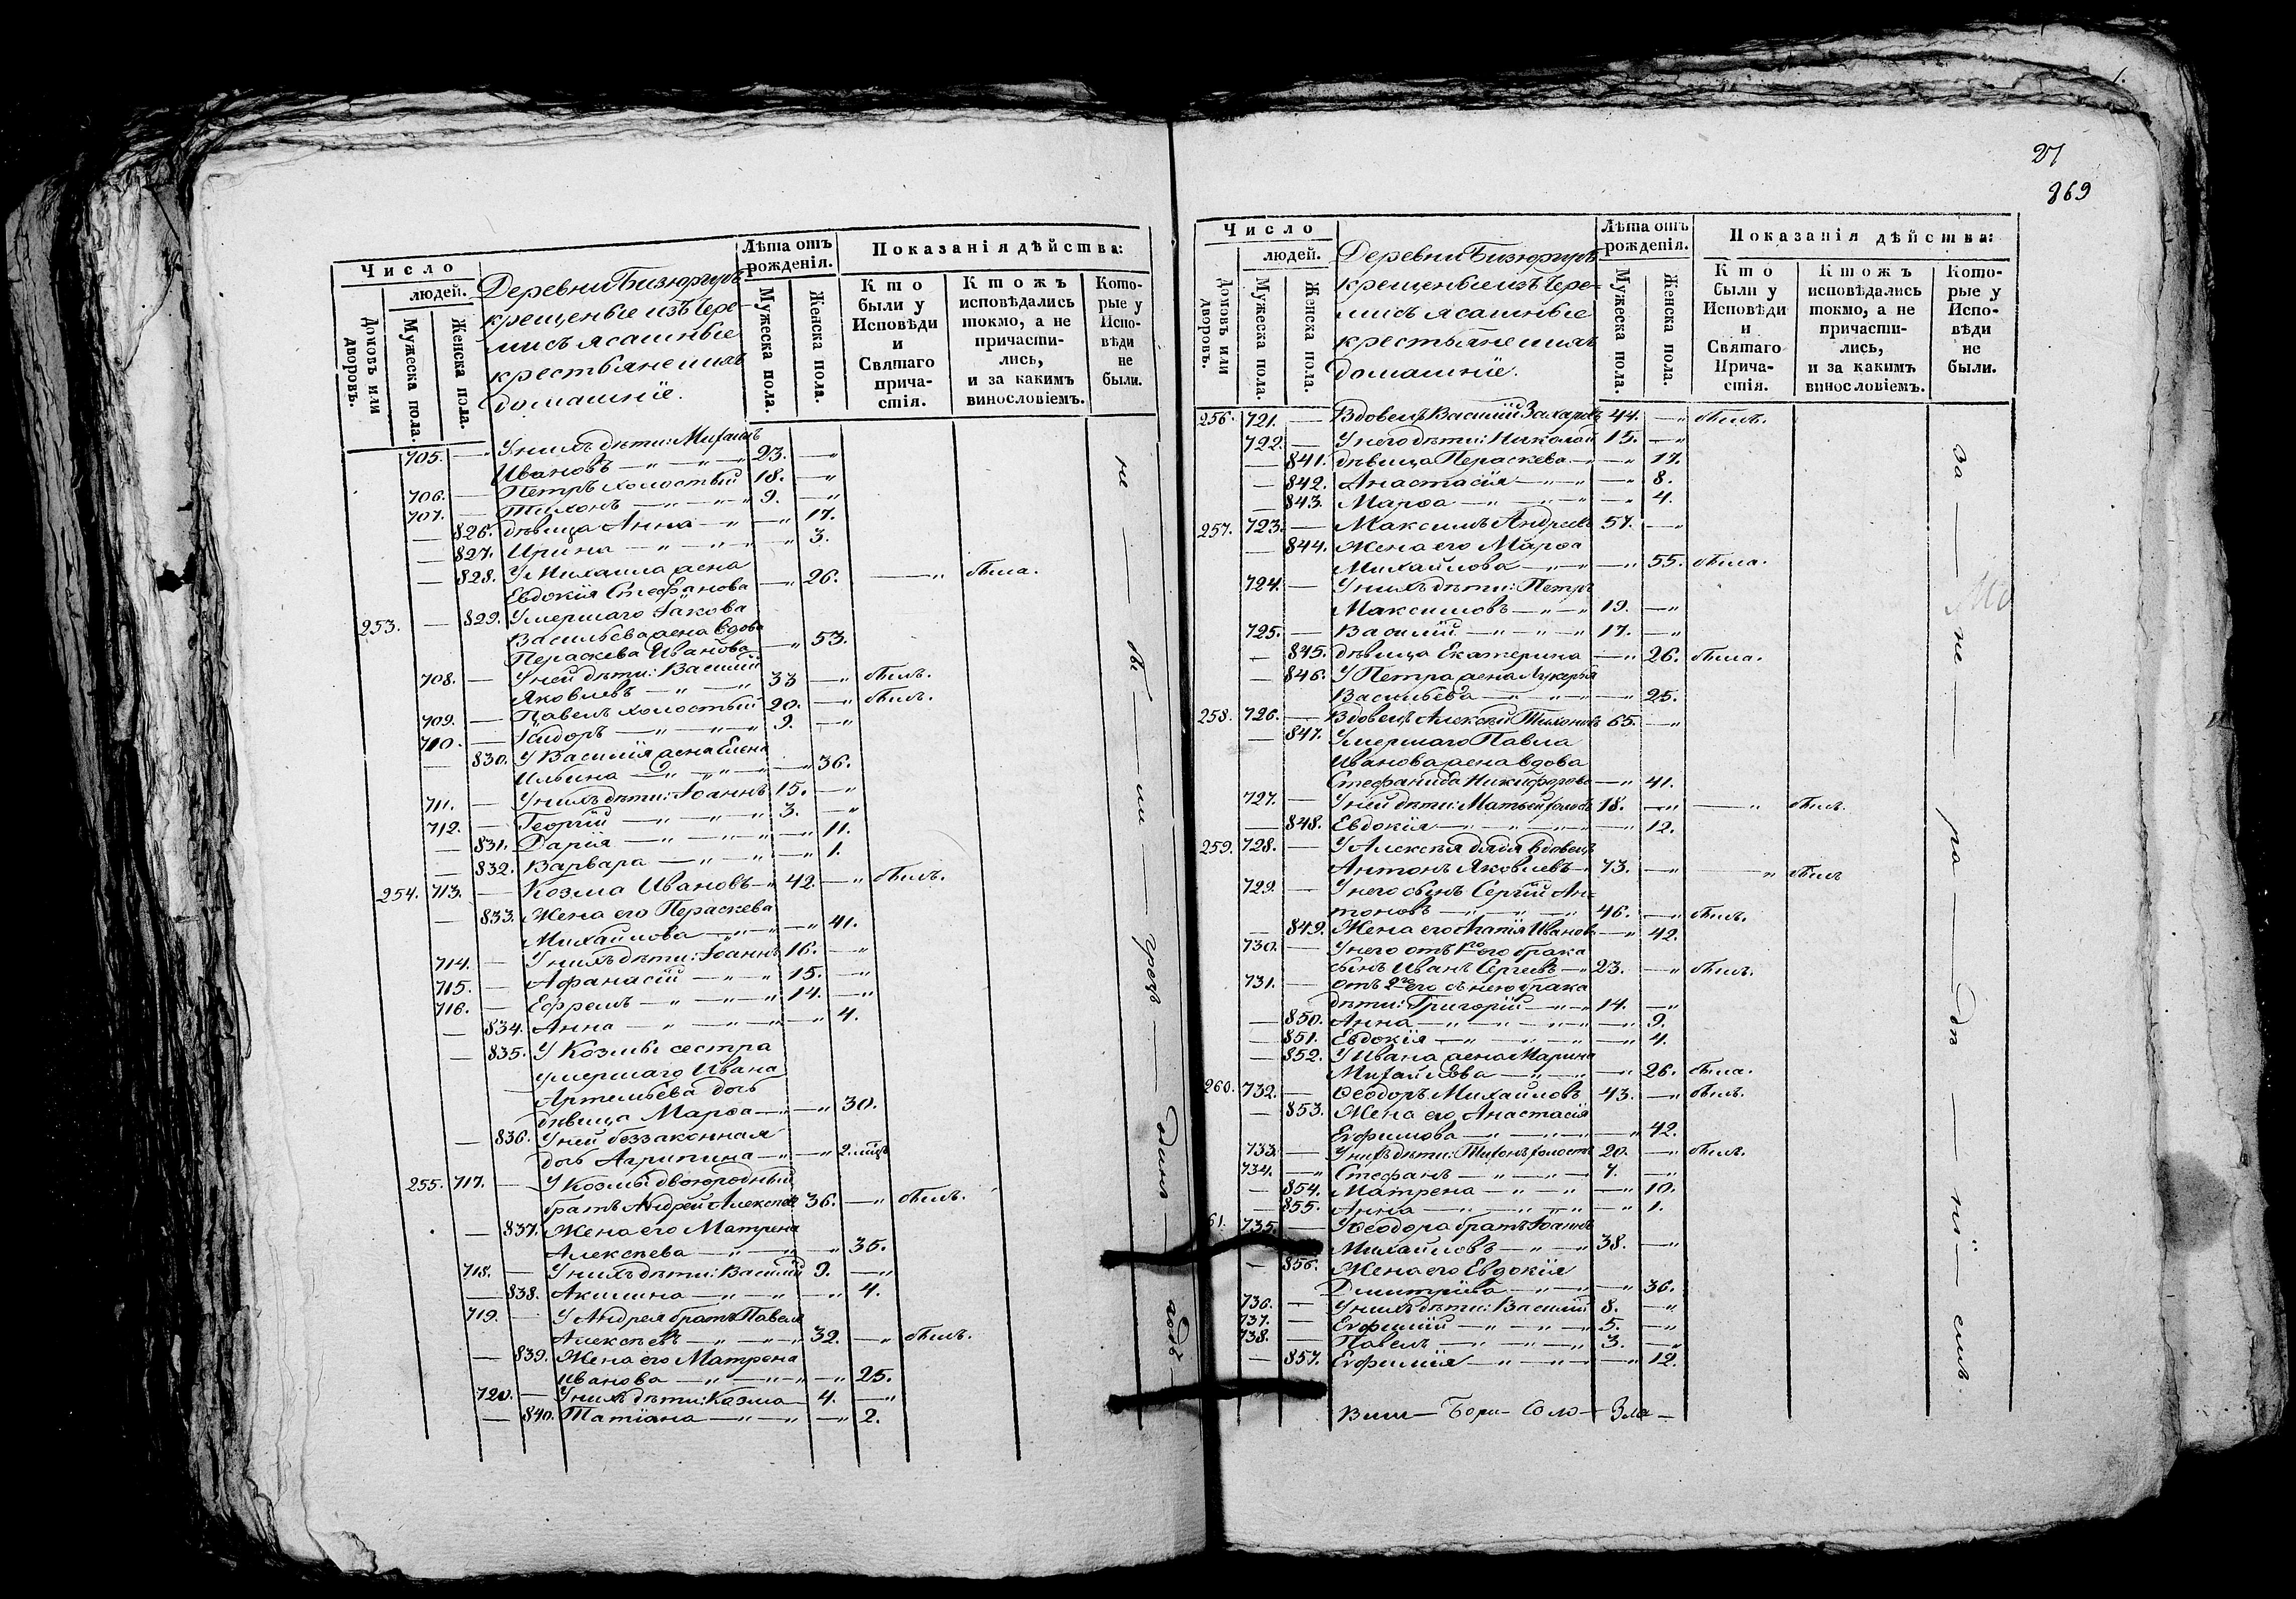 Число
людей.
Домовъ или дворовъ.
Мужеска пола.
Женска пола.
Деревни Бизюргубъ
крещеные изъ Чере-
мисъ ясашные
крестьяне и ихъ
домашніе.
Лѣта отъ рожденія.
Мужеска пола.
Женска пола.
Показанія дѣйства:
Кто были у Исповѣди и Святаго причастія.
Ктожъ исповѣдались токмо, а не причастились, и за какимъ винословіемъ.
Которые у Исповѣди не были.
705. — У нихъ дѣти: Михаилъ
Ивановъ — " — " — 23. — "
706. — Петръ холостый 18. — "
707. — Тихонъ — " — " — " 9. — "
— 826. дѣвица Анна — " — " 17.
— 827. Ирина — " — " — " 3.
— 828. У Михаила жена
Евдокія Стефанова — " 26. — " была.
253. — 829. Умершаго Іакова
Васильева жена вдова
Пераскева Иванова — " 53.
708. — У ней дѣти: Василій
Яковлевъ — " — " 33 — " былъ.
709. — Павелъ холостый 20. — " былъ.
710. — Исидоръ — " — " — " 9. — "
— 830. У Василія жена Елена
Ильина — " — " — " 36.
711. — У нихъ дѣти: Іоаннъ 15. — "
712. — Георгій — " — " — " 3. — "
— 831. Дарія — " — " — " — " 11.
— 832. Варвара — " — " — " 1.
254. 713. — Козма Ивановъ — " 42. — " былъ.
— 833. Жена его Пераскева
Михайлова — " — " — " 41.
714. — У нихъ дѣти: Іоаннъ 16. — "
715. — Афанасій — " — " 15. — "
716. — Ефремъ — " — " — " 14. — "
— 834. Анна — " — " — " — " 4.
— 835. У Козмы сестра
умершаго Ивана
Артемьева дочь
дѣвица Марѳа — " — " 30.
— 836. У ней беззаконная
дочь Агрипина — " — " 2.
255. 717. — У Козмы двоюродный
братъ Андрей Алексѣевъ 36. — " былъ.
— 837. Жена его Матрена
Алексѣева — " — " — " 35.
718. — У нихъ дѣти: Василій 9. — "
— 838. Акилина — " — " — " 4.
719. — У Андрея братъ Павелъ
Алексѣевъ — " — " — " 32. — " былъ.
— 839. Жена его Матрена
Иванова — " — " — " — " 25.
720. — У нихъ дѣти: Козма 4. — "
— 840. Татіана — " — " — " 2.
не — бы — ли
27
869
Число
людей.
Домовъ или дворовъ.
Мужеска пола.
Женска пола.
Деревни Бизюргубъ
крещеные изъ Чере-
мисъ ясашные
крестьяне и ихъ
домашніе.
Лѣта отъ рожденія.
Мужеска пола.
Женска пола.
Показанія дѣйства:
Кто были у Исповѣди и Святаго Причастія.
Ктожъ исповѣдались токмо, а не причастились, и за какимъ винословіемъ.
Которые у Исповѣди не были.
256. 721. — Вдовецъ Василій Захаровъ 44. — " былъ.
722. — У него дѣти: Николай 15. — "
— 841. дѣвица Пераскева — " — " 17.
— 842. Анастасія — " — " — " 8.
— 843. Марѳа — " — " — " — " 4.
257. 723. — Максимъ Андреевъ 57. — "
— 844. Жена его Марѳа
Михайлова — " — " — " 55. была.
724. — У нихъ дѣти: Петръ
Максимовъ — " — " 19. — "
725. — Василій — " — " — " 17. — "
— 845. дѣвица Екатерина — " 26. была.
— 846. У Петра жена Лукерья
Васильева — " — " — " 25.
258. 726. — Вдовецъ Алексѣй Тихоновъ 65. — "
— 847. Умершаго Павла
Иванова жена вдова
Стефанида Никифорова — " 41.
727. — У ней дѣти: Матвей холостъ 18. — " — " былъ.
— 848. Евдокія — " — " — " — " 12.
259. 728. — У Алексѣя дядя вдовецъ
Антонъ Яковлевъ — " 73. — " — " былъ
729. — У него сынъ Сергій Ан-
тоновъ — " — " — " 46. — " былъ.
— 849. Жена его Иванова — " 42.
730. — У него отъ 1го его брака
сынъ Иванъ Сергеевъ — " 23. — " былъ.
731. — отъ 2го его съ нею брака
дѣти: Григорій — " — " 14. — "
— 850. Анна — " — " — " — " 9.
— 851. Евдокія — " — " — " — " 4.
— 852. У Ивана жена Марина
Михайлова — " — " — " 26. была.
260. 732. — Ѳеодоръ Михайловъ 43. — " былъ.
— 853. Жена его Анастасія
Ефимова — " — " — " 42.
733. — У нихъ дѣти: Тихонъ холостъ 20. — " былъ.
734. — " Стефанъ — " — " — " 7. — "
— 854. Матрена — " — " — " 10.
— 855. Анна — " — " — " — " 1.
61. 735. — У Ѳеодора братъ Іоаннъ
Михайловъ — " — " 38. — "
— 856. Жена его Евдокія
Димитріева — " — " — " 36.
736. — У нихъ дѣти: Василій 8. — "
737. — Ефимій — " — " — " 5. — "
738. — Павелъ — " — " — " 3. — "
— 857. Ефимія — " — " — " 12.
за — не — ра — дѣ — ні — емъ.